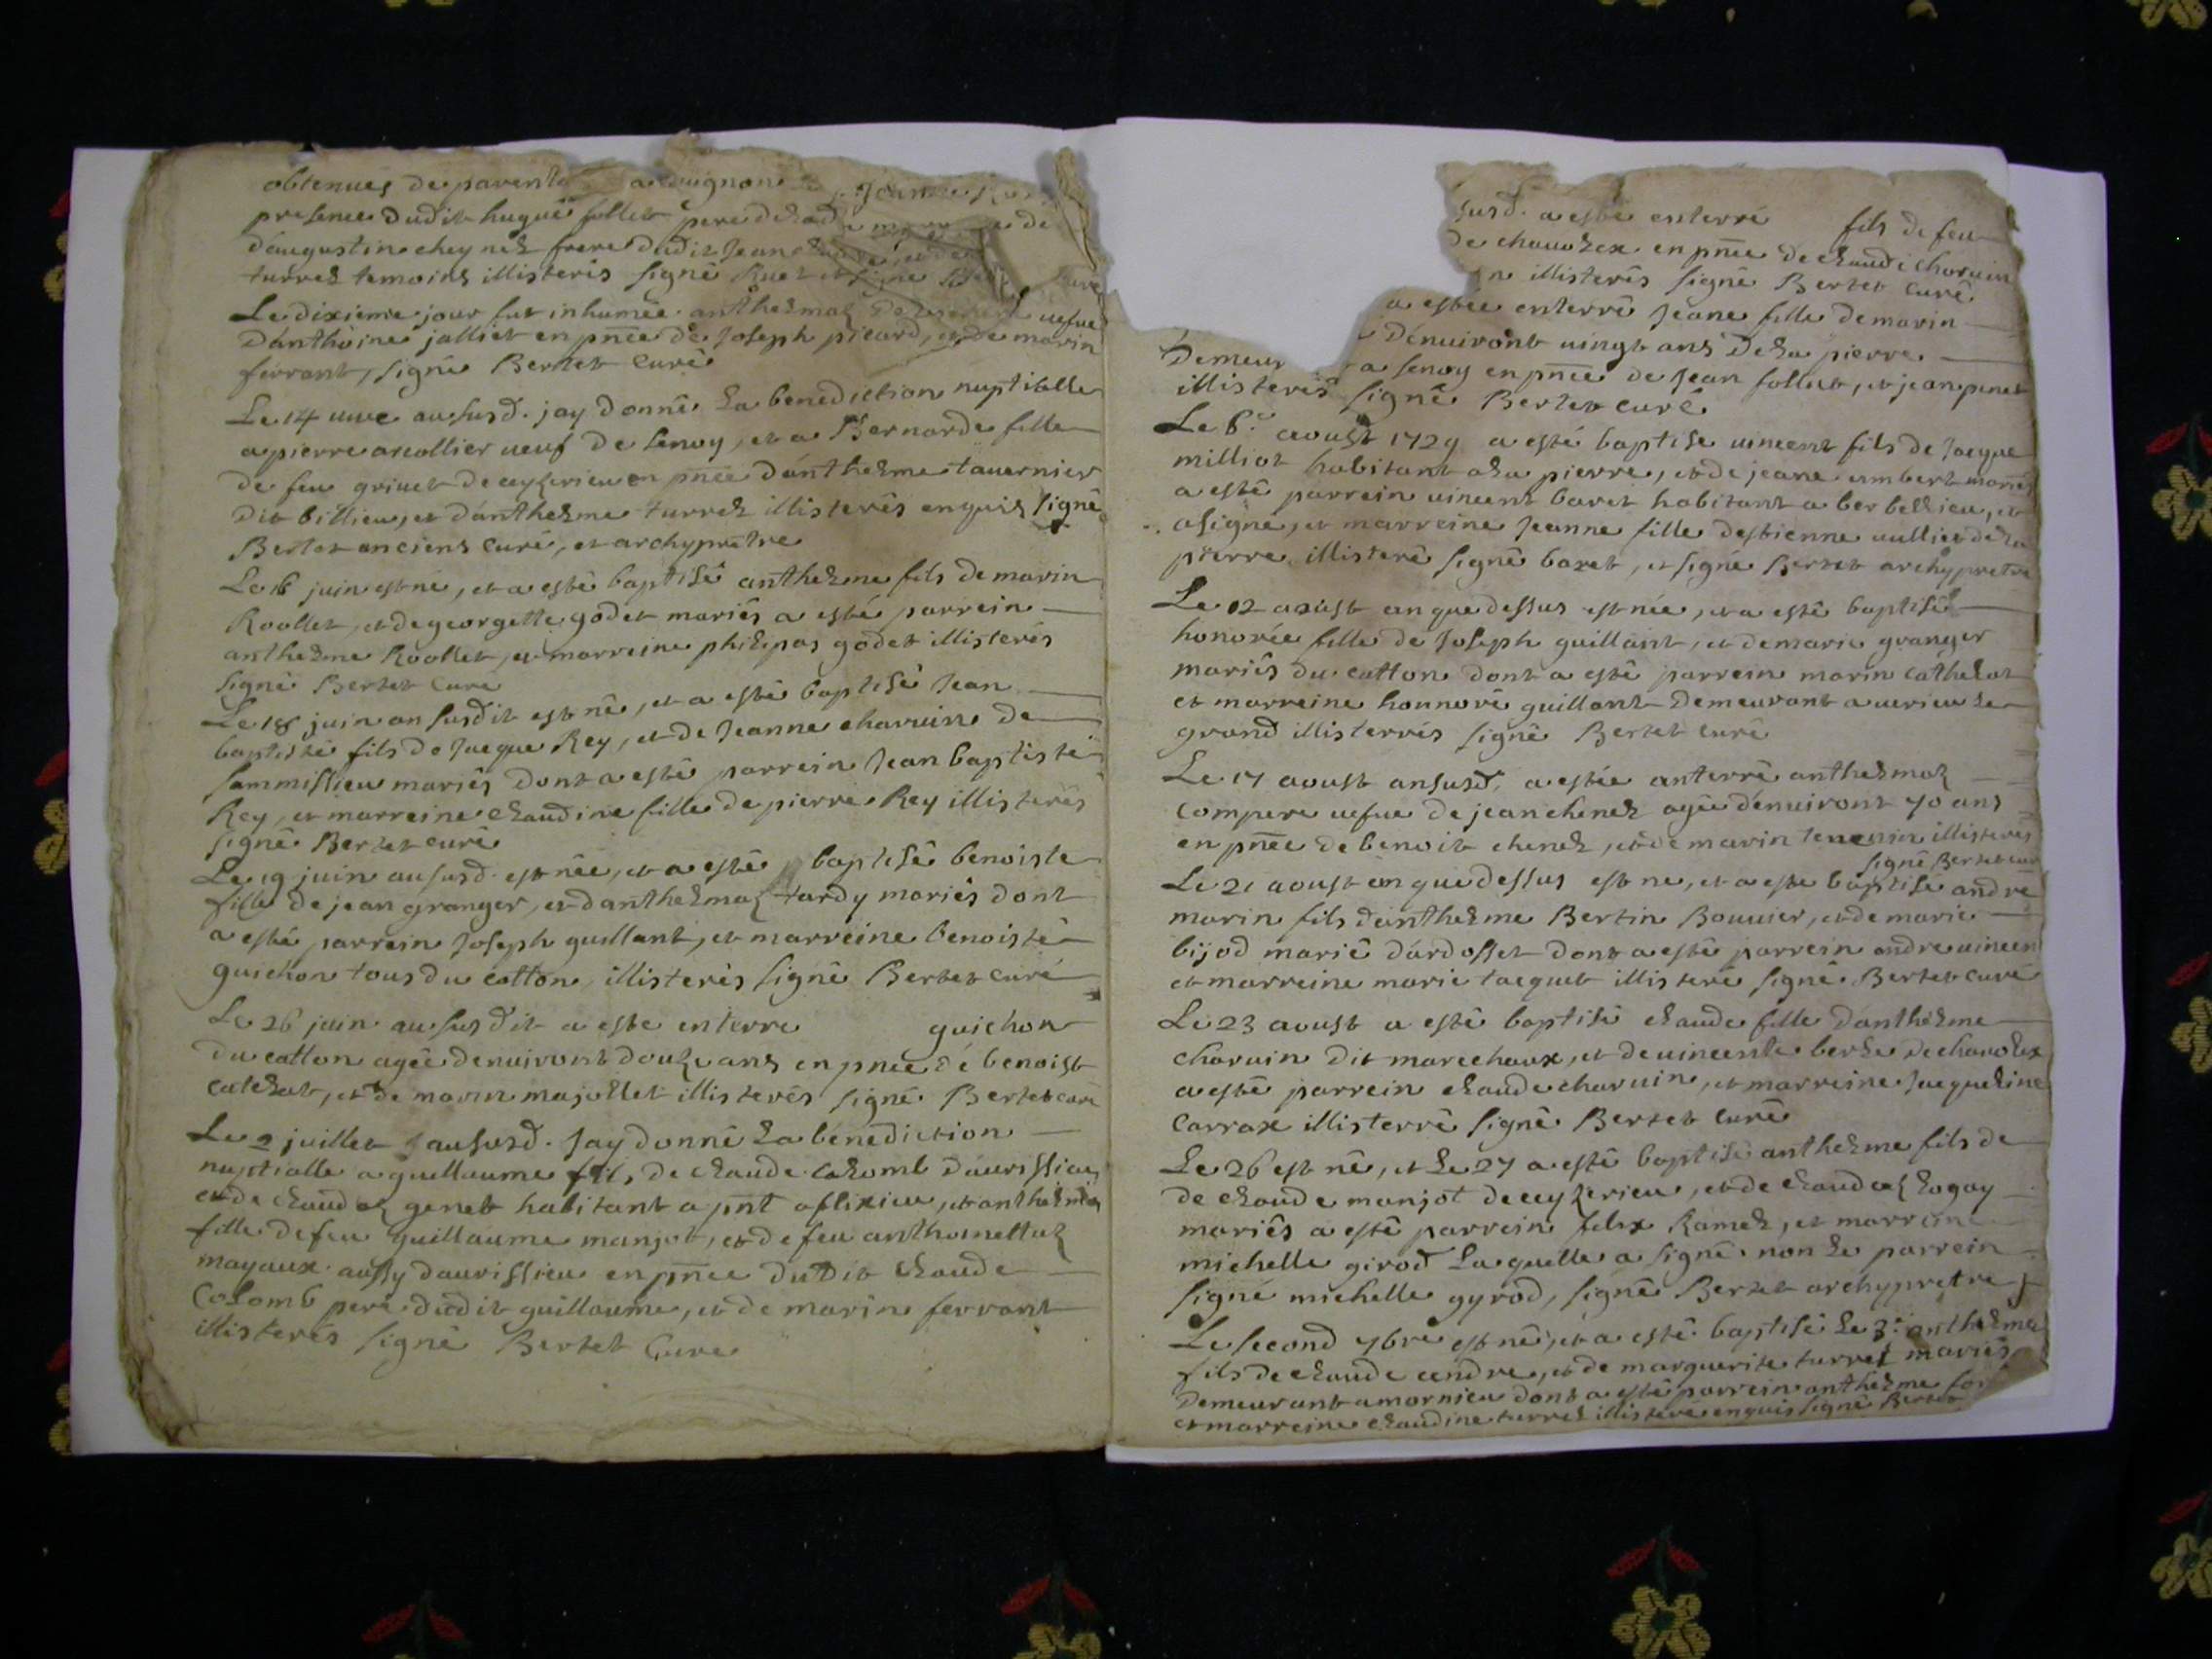 obtenues de parenté a auignon
presence dudit hugue follet pere de
d'augustin cheynel frere dudit Jean
turrel temoins illisterés signé Ruet et signé curé
Le dixieme jour fut inhumée anthelmaz uefue
d'anthoine jalliet en pñce de Joseph picard, et de marin
ferrant, signé Bertet curé
Le 14 au susd. jay donné la benediction nuptialle
a pierre arcollier ueuf de senoy, et a Bernarde fille
de feu griuet de ceyzerieu en pñce d'anthelme tauernier
dit billieu, et d'anthelme turrel illisterés enquis signé
Bertet anciens curé, et archyprêtre
Le 16 juin est né, et a esté baptisé anthelme fils de marin
Roollet, et de georgette godet mariés a esté parrein
anthelme Roollet, et marreine philipas godet illisterés
signé Bertet curé
Le 18 juin an susdit est né, et a esté baptisé Jean
baptiste fils de Jacque Rey, et de Jeanne charuin de
sammissieu mariés dont a esté parrein Jean baptiste
Rey, et marreine claudine fille de pierre Rey illisterés
signé Bertet curé
Le 19 juin au susd. est née, et a esté baptisé benoiste
fille de jean granger, et d'anthelmaz tardy mariés dont
a esté parrein Joseph guillant, et marreine benoiste
guichon tous du catton, illisterés signé Bertet curé
Le 26 juin au susdit a este enterre guichon
du catton agée denuiront douze ans en pnce dé benoist
catelat, et de marin majollet illisterés signé Bertet curé
Le 2 juillet au susd. Jay donné la bénediction
nuptialle a guellaume fils de claude colomb d'aurissieu
et de claudaz genet habitant a pñt a flixieu, et anthelmaz
fille de feu guillaume manjot, et de feu anthomettaz
mayaux aussy daurissieu en pñce dudit claude
Colomb pere dudit guillaume, et de marin ferrant
illisterés signé Bertet Cure
susd. a esté enterré fils de feu
de chauolex en pñce de claudi charuin
illisterés signé Bertet curé
a estée enterré Jeane fille de marin
dénuiront uingt ans de la pierre
demeur a senoy en pñce de Jean follet, et jean penet
illisterés signé Bertet curé
Le 6e aoust 1729 a esté baptise uincent fils de Jacque
milliot habitant a la pierre, et de jeane umbert mariés
a esté parrein uincent baret habitant a berbellieu, et
a signe, et marreine Jeanne fille d'estienne uullier de la
pierre illisteré signé baret, et signé Bertet archypretre
Le 12 aoust an que dessus est née, et a esté baptisé
honorée fille de Joseph guillant, et de marie granger
mariés du catton dont a esté parrein marin cathelat
et marreine honnoré guillant demeurant a uerieu le
grand illisterrés signé Bertet curé
Le 17 aoust an susd. a estée anterré anthelmaz
compere uefue de jean chenel agée dénuiront 70 ans
en pñce de benoit chenel, et de marin illisterés
signé Bertet cur
Le 21 aoust an que dessus est ne, et a este baptisé andré
marin fils d'anthelme Bertin Bouuier, et de marie
bijod marié d'ardosset dont a esté parrein andre uincen
et marreine marie tacquet illisteré signé Bertet curé
Le 23 aoust a esté baptisé claude fille d'anthelme
charuin dit marechaux, et de uincente berle de chauolex
a esté parrein claude charuin, et marreine Jacqueline
Carrax illisterré signé Bertet curé
Le 26 est né, et le 27 a esté baptisé anthelme fils de
de claude manjot de ceyzerieu, et de claudaz logay
mariés a esté parrein felix Ramel, et marreine
michelle girod laquelle a signé non le parrein
signé michelle gyrod, signé Bertet archypretre
Le second 7bre est né, et a esté baptisé le 3e anthelme
fils de claude cendre, et de marguerite turrel mariés
demeurant a mornieu dont a esté parrein anthelme
et marreine claudine turrel illisteré enquis signé Bertet